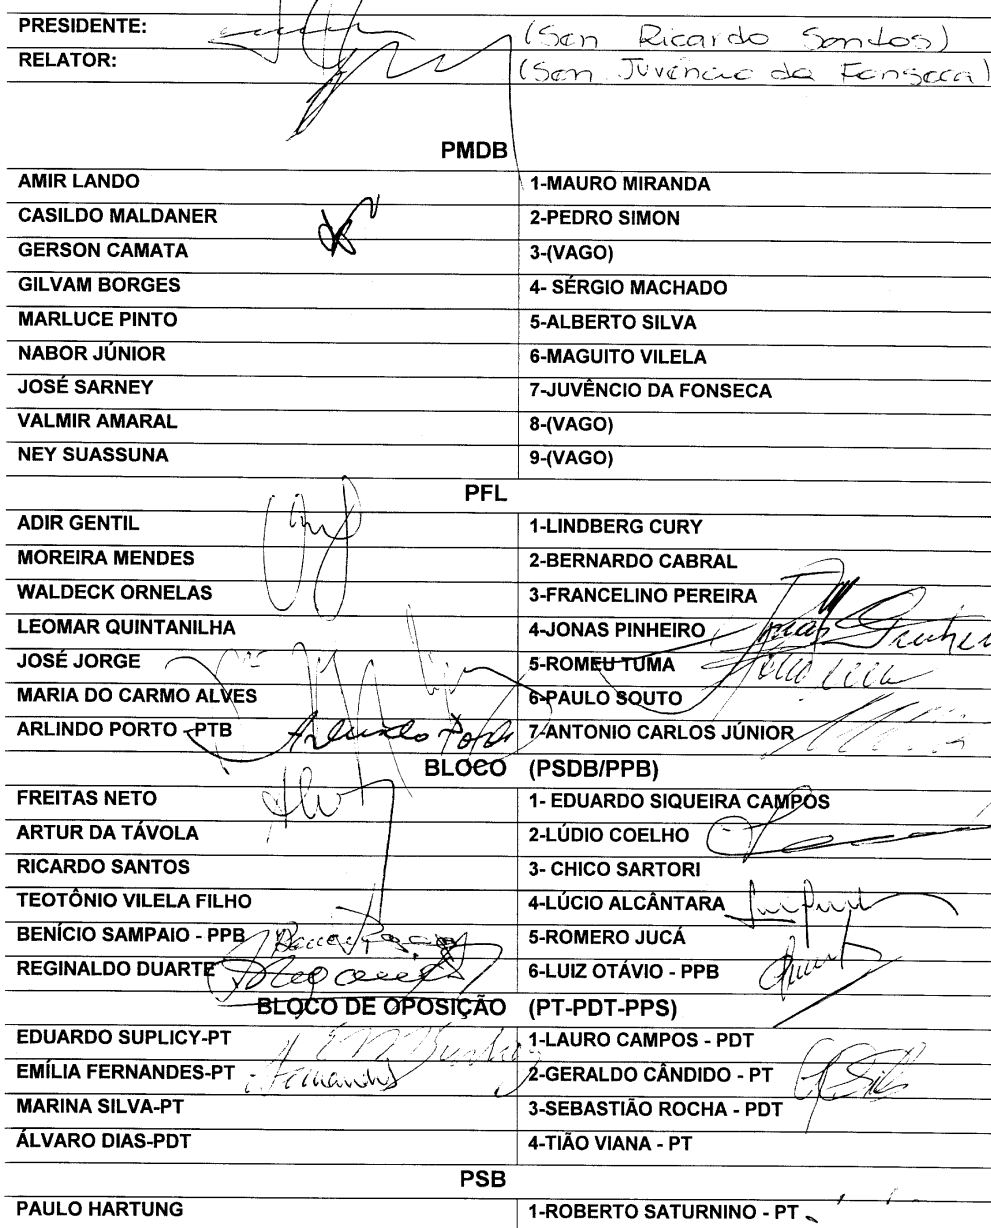 PRESIDENTE: (Sen Ricardo Santos)
RELATOR: (Sen Juvêncio da Fonseca)
PMDB
AMIR LANDO 1-MAURO MIRANDA
CASILDO MALDANER 2-PEDRO SIMON
GERSON CAMATA 3-(VAGO)
GILVAM BORGES 4- SÉRGIO MACHADO
MARLUCE PINTO 5-ALBERTO SILVA
NABOR JÚNIOR 6-MAGUITO VILELA
JOSÉ SARNEY 7-JUVÊNCIO DA FONSECA
VALMIR AMARAL 8-(VAGO)
NEY SUASSUNA 9-(VAGO)
PFL
ADIR GENTIL 1-LINDBERG CURY
MOREIRA MENDES 2-BERNARDO CABRAL
WALDECK ORNELAS 3-FRANCELINO PEREIRA
LEOMAR QUINTANILHA 4-JONAS PINHEIRO Jonas Pinheiro
JOSÉ JORGE 5-ROMEU TUMA
MARIA DO CARMO ALVES 6-PAULO SOUTO
ARLINDO PORTO -PTB Arlindo Porto 7-ANTONIO CARLOS JÚNIOR
BLOCO (PSDB/PPB)
FREITAS NETO 1- EDUARDO SIQUEIRA CAMPOS
ARTUR DA TÁVOLA 2-LÚDIO COELHO
RICARDO SANTOS 3- CHICO SARTORI
TEOTÔNIO VILELA FILHO 4-LÚCIO ALCÂNTARA
BENÍCIO SAMPAIO - PPB 5-ROMERO JUCÁ
REGINALDO DUARTE 6-LUIZ OTÁVIO - PPB
BLOCO DE OPOSIÇÃO (PT-PDT-PPS)
EDUARDO SUPLICY-PT 1-LAURO CAMPOS - PDT
EMÍLIA FERNANDES-PT Fernandes 2-GERALDO CÂNDIDO - PT
MARINA SILVA-PT 3-SEBASTIÃO ROCHA - PDT
ÁLVARO DIAS-PDT 4-TIÃO VIANA - PT
PSB
PAULO HARTUNG 1-ROBERTO SATURNINO - PT